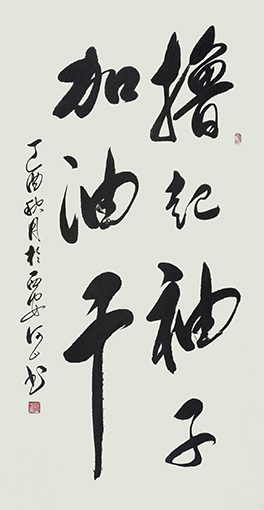 撸起袖子
加油干
丁酉秋月於西安河山书